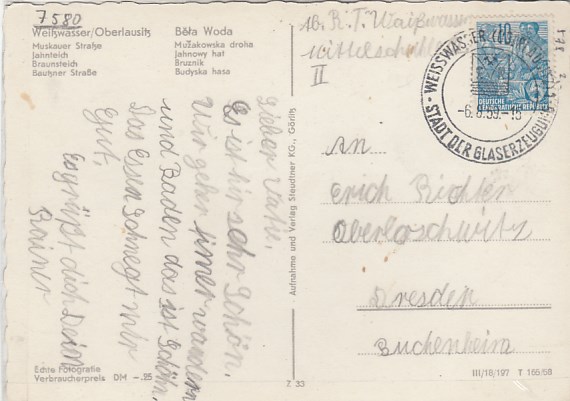 7580
Weißwasser/Oberlausitz
Muskauer Straße
Jahnteich
Braunsteich
Bautzner Straße
Běła Woda
Mužakowska droha
Jahnowy hat
Bruznik
Budyska hasa
Ab. R. T. Waißwasser
II
WEISSWASSER
10
DEUTSCHE
DEMOKRATISCHE REPUBLIK
-6.8.59.-18
STADT DER GLASERZEUGUNG
Lieber Vater,
Es ist hir sehr Schön.
Wir gehen imer wandern
und Baden das ist Schöhn,
Das Essen Schmegt mir
Gut,
es grüßt dich Dein
Rainer
Aufnahme und Verlag Steudtner KG., Görlitz
An
Erich Richter
Oberloschwitz
Dresden
Buchenheim
Echte Fotografie
Verbraucherpreis DM -.25
7. 33
III/18/197 T 166/58